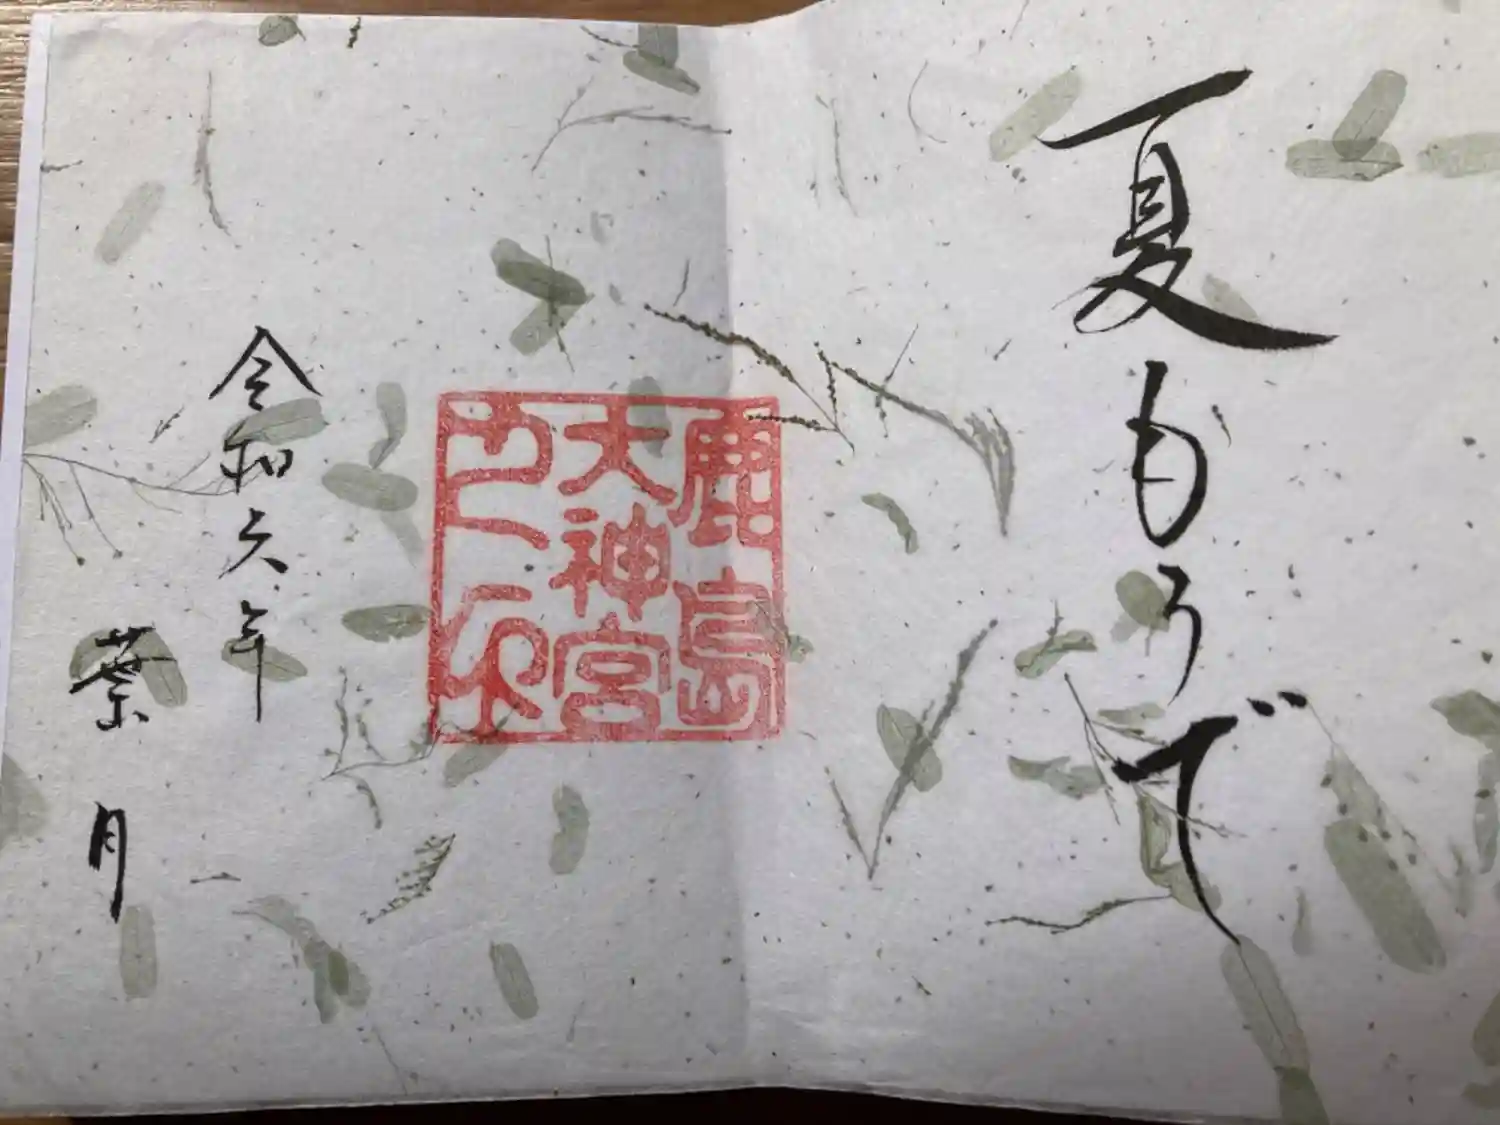 夏もうで
鹿島
大神宮
之印
令和六年
葉月